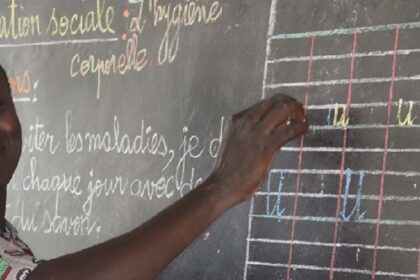 ation sociale : L'hygiène
corporelle.
ns :
iter les maladies, je d
n chaque jour avec de
du savon.
u u
u u